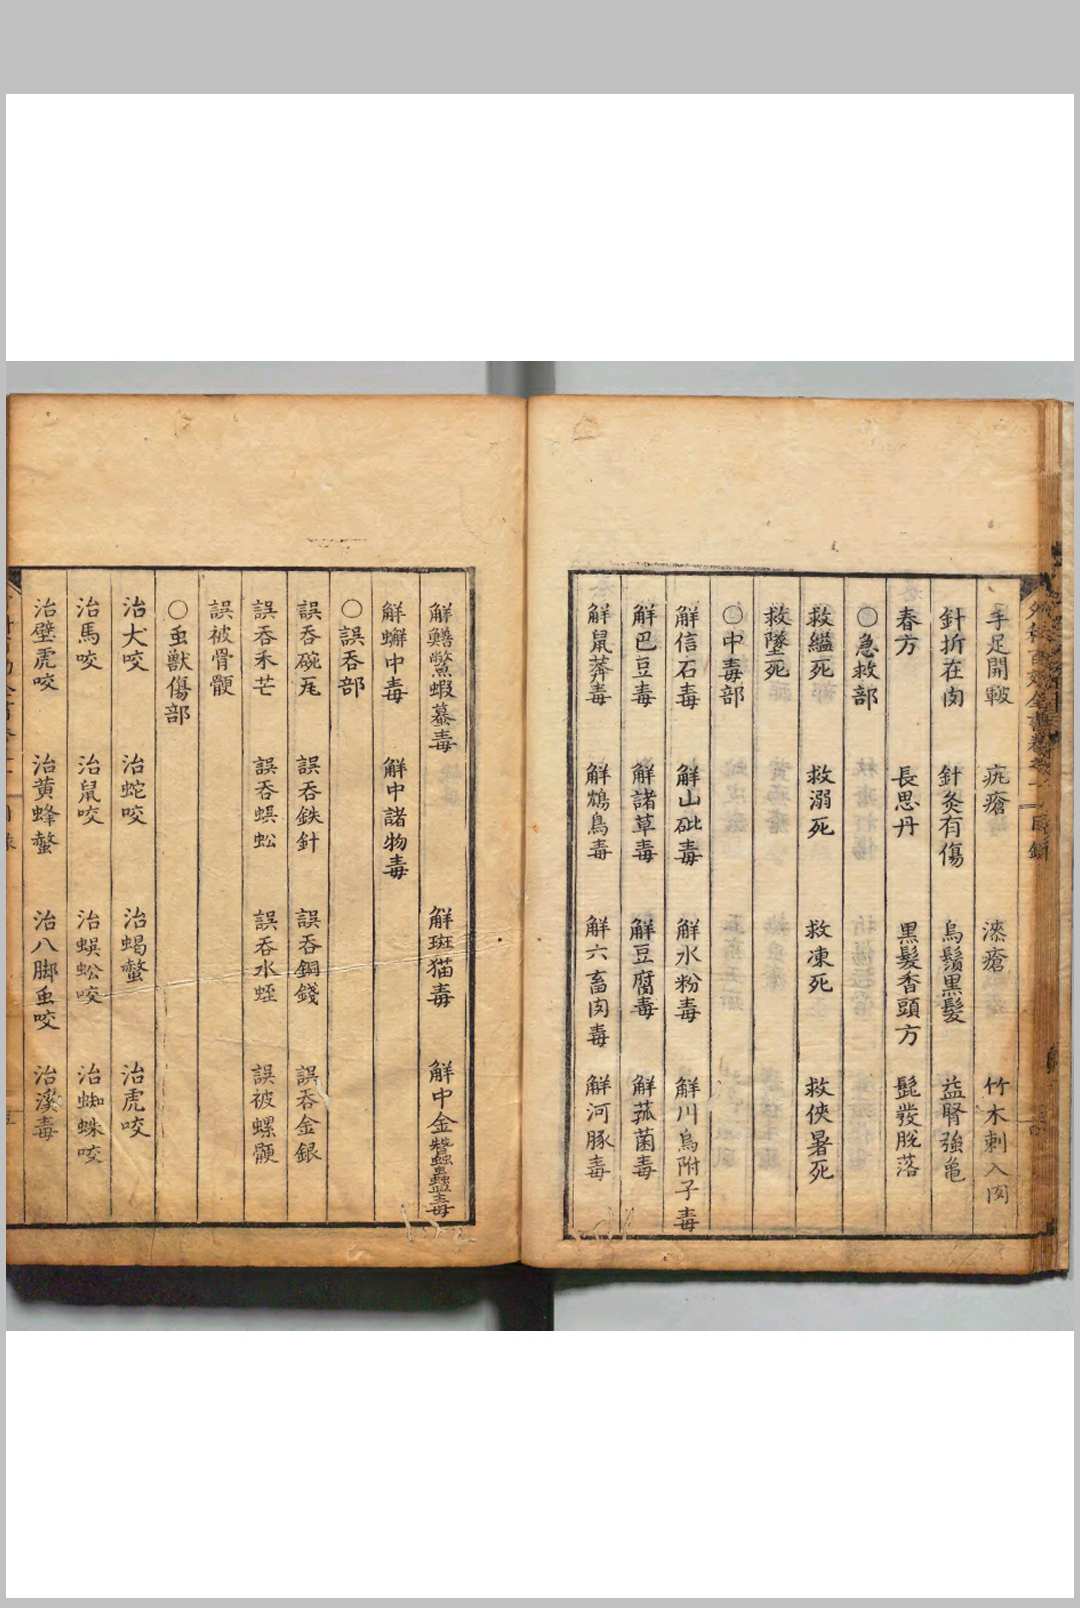 手足開皸 疕瘡 漆瘡 竹木刺入肉
針折在肉 針灸有傷 烏鬚黒髪 益腎強亀
春方 長思丹 黒髮香頭方 髭發脫落
○急救部
救縊死 救溺死 救凍死 救俠暑死
救墜死
○中毒部
解信石毒 解山砒毒 解水粉毒 解川烏附子毒
解巴豆毒 解諸草毒 解豆腐毒 解菰菌毒
解鼠莽毒 解鴆鳥毒 解六畜肉毒 解河豚毒
解鱔鱉蝦蟇毒 解斑猫毒 解中金蠶蠱毒
解蠏中毒 解中諸物毒
○誤吞部
誤吞碗瓦 誤吞鉄針 誤吞銅錢 誤吞金銀
誤吞禾芒 誤吞蜈蚣 誤吞水蛭 誤被螺骾
誤被骨骾
○虫獸傷部
治犬咬 治蛇咬 治蝎螫 治虎咬
治馬咬 治鼠咬 治蜈蚣咬 治蜘蛛咬
治壁虎咬 治黄蜂螫 治八脚虫咬 治溪毒